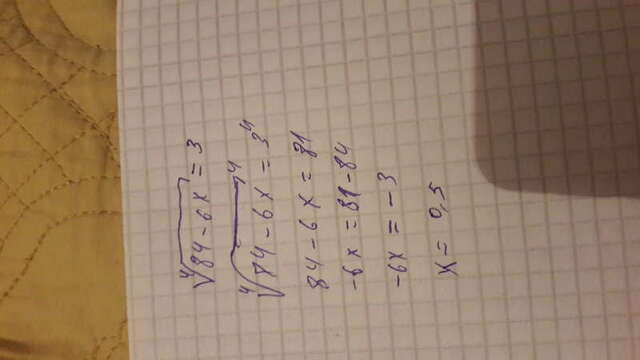 ⁴√84-6x = 3
⁴√84-6x⁴ = 3⁴
84-6x = 81
-6x = 81-84
-6x = -3
x = 0,5